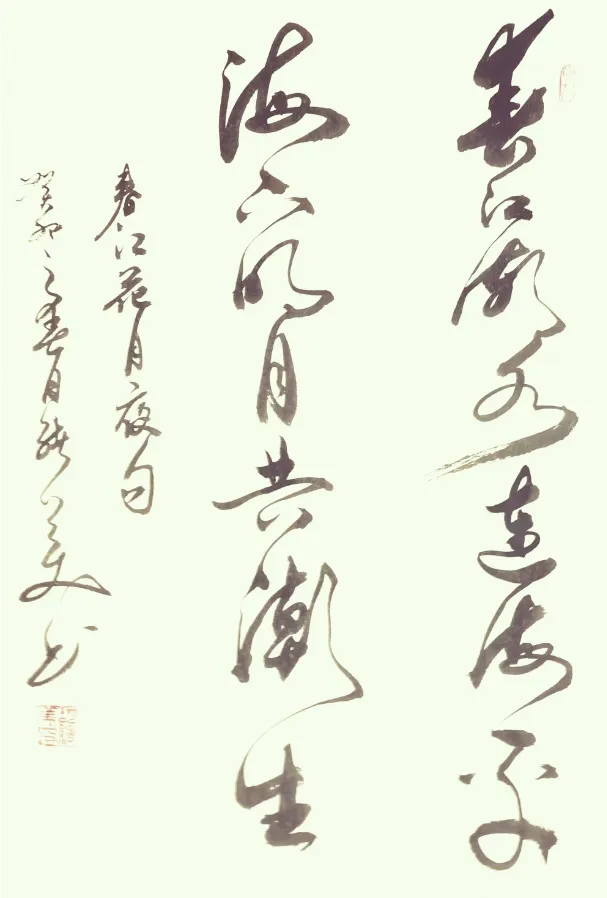 春江潮水連海平
海上明月共潮生
春江花月夜句
癸卯之春月美书